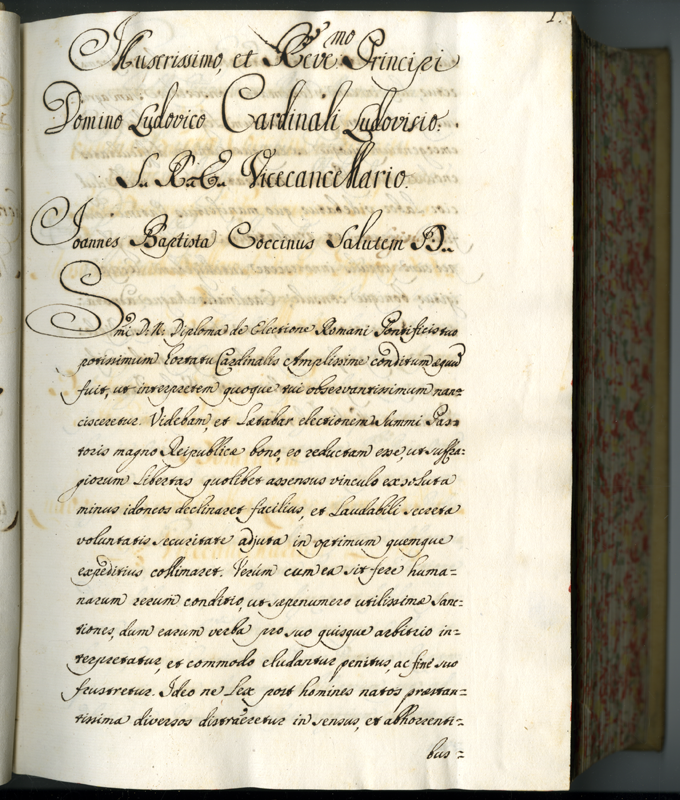 1.
Illustrissimo, et Reve.mo Principi
Domino Ludovico Cardinali Ludovisio.
S. R. E. Vicecancellario.
Joannes Baptista Coccinus Salutem D..
Smi D. N. Diploma de Electione Romani Pontificis tuo
potissimum hortatu Cardinalis Amplissime conditum æquũ
fuit, ut interpretem quoque tui observantissimum nan=
cisceretur. Videbam, et Lætabar electionem Summi Pas=
toris magno Reipublicæ bono, eo reductam esse, ut suffra=
giorum Libertas quolibet assensus vinculo exsoluta
minus idoneos declinaret facilius, et Laudabili secreta
voluntatis securitate adjuta in optimum quemque
expeditius collimaret. Verùm cum ea sit fere huma=
narum rerum conditio, ut sæpenumero utilissimæ Sanc=
tiones, dum earum verba pro suo quisque arbitrio in=
terpretatur, et commodo eludantur penitus, ac fine suo
frustretur. Ideo ne Lex post homines natos præstan=
tissima diversos distraeretur in sensus, et abhorrenti=
bus =